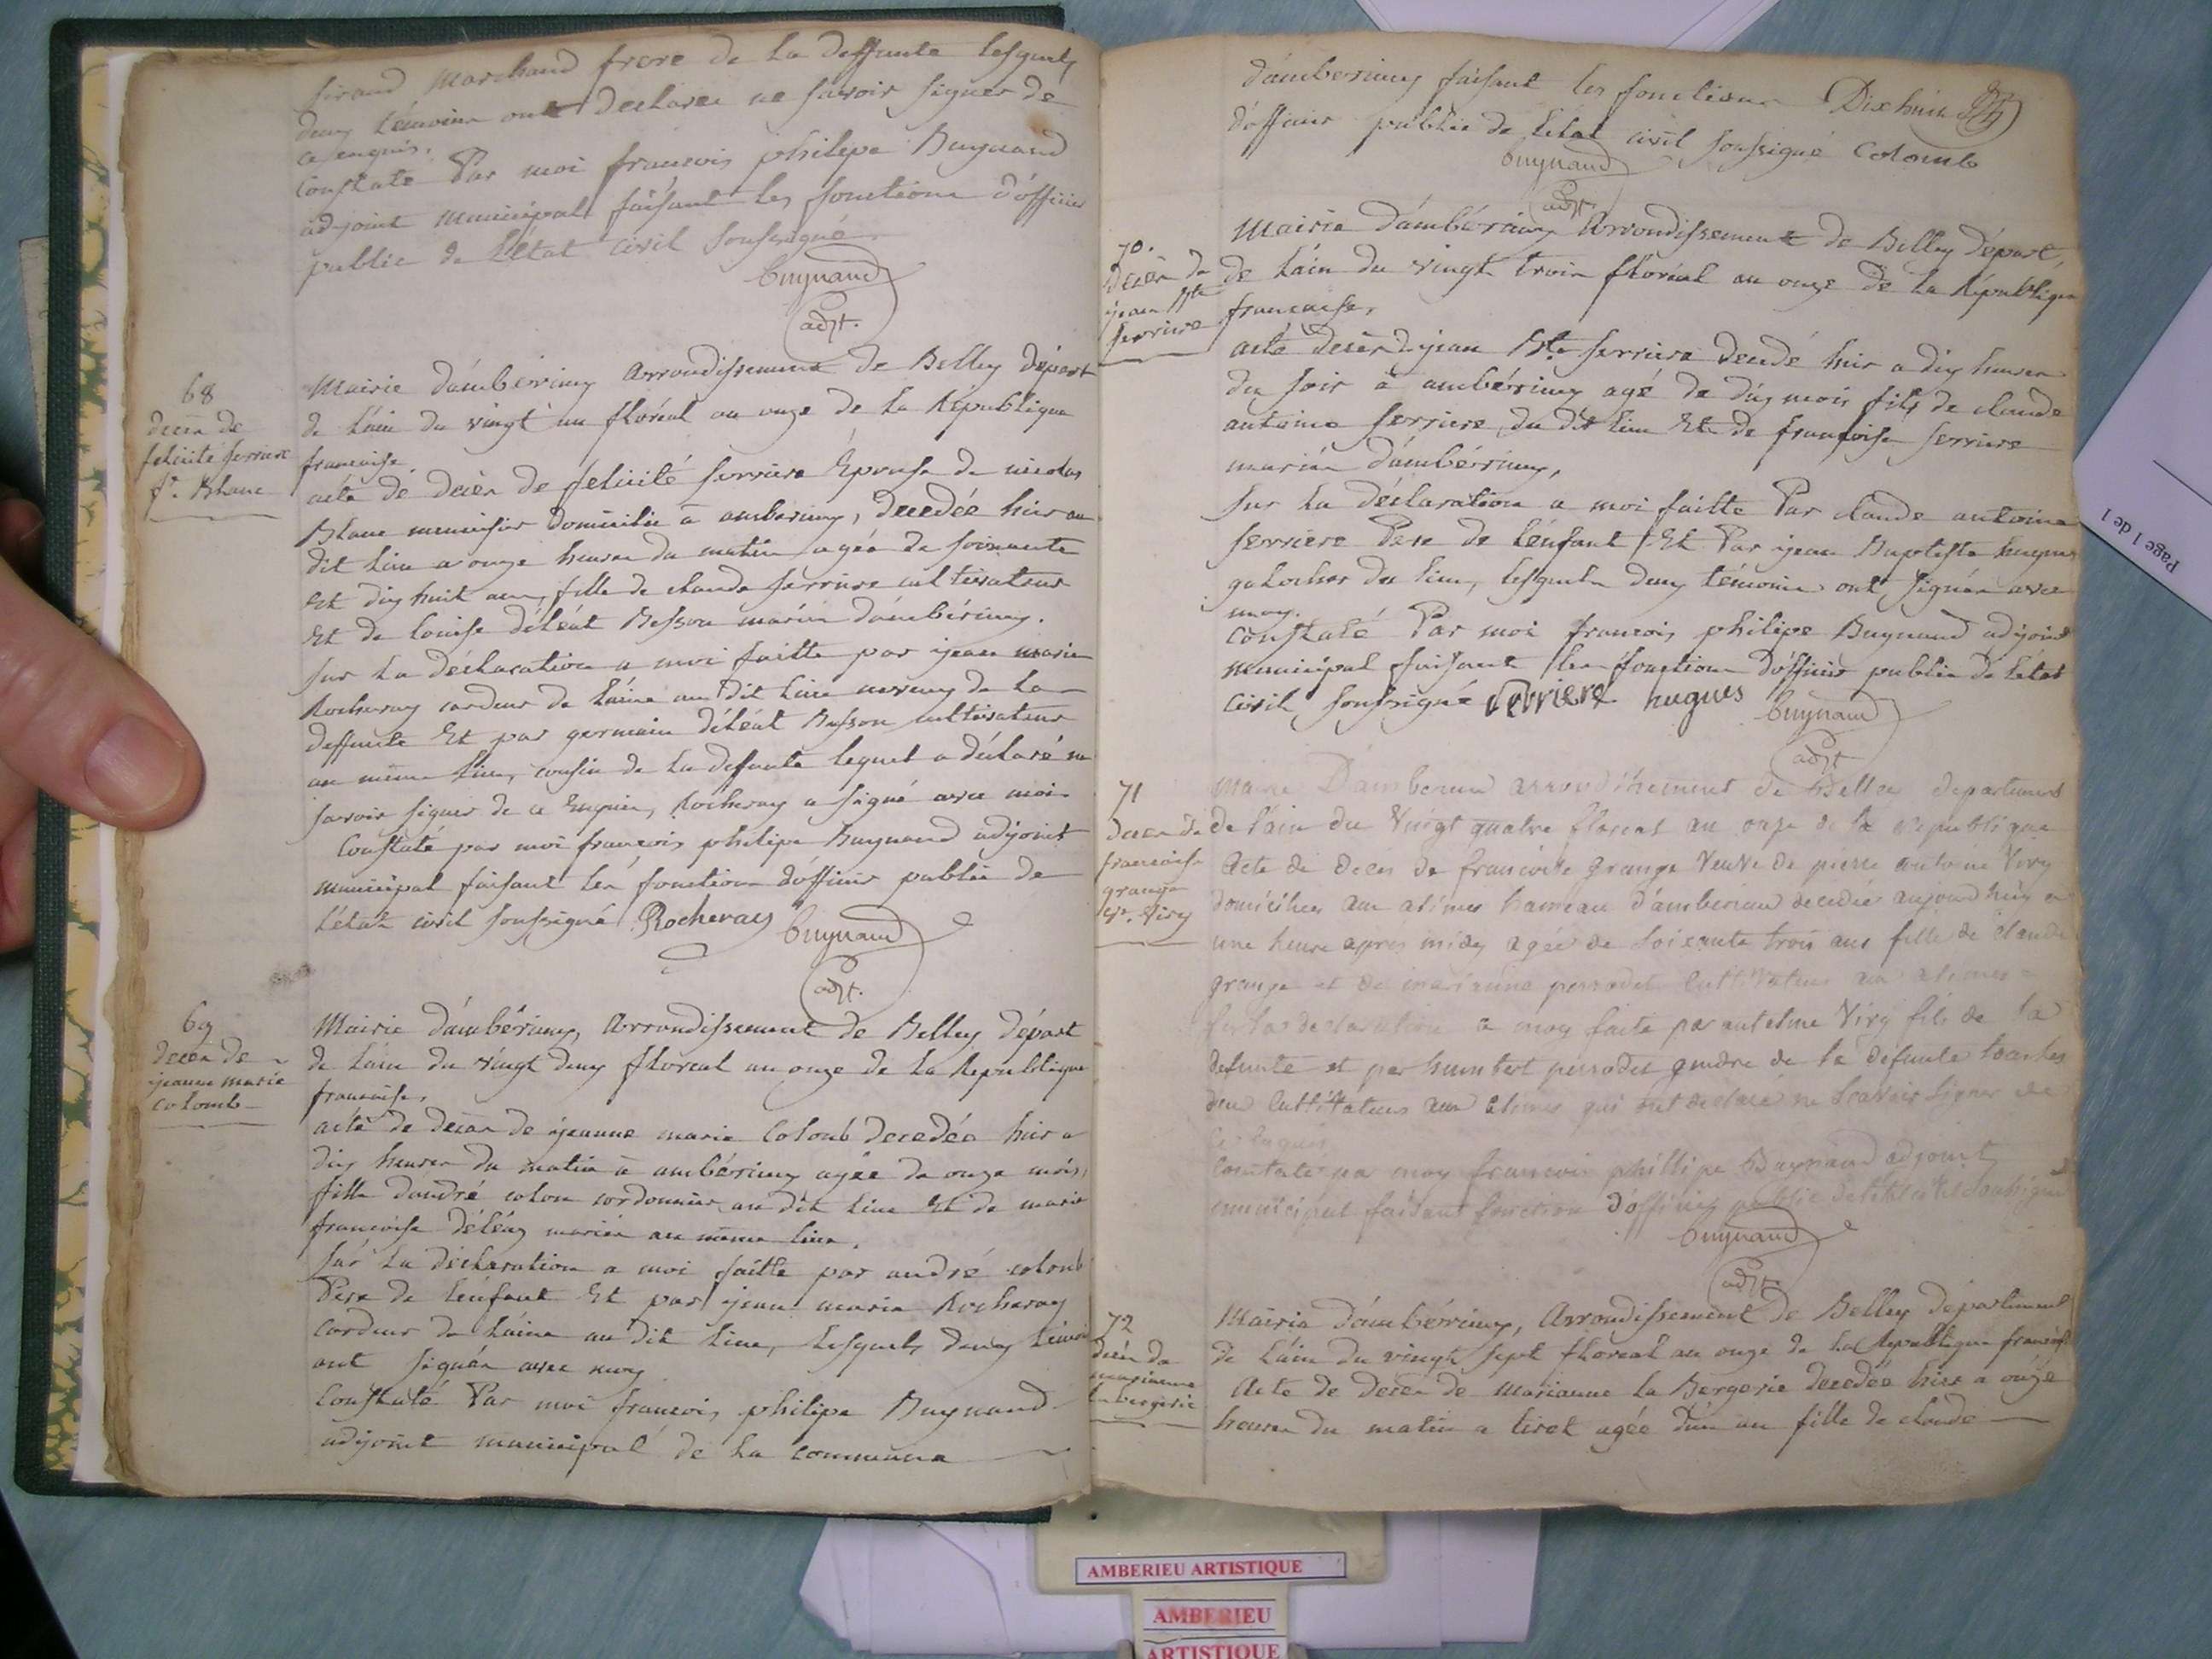 marchand frere de la deffunte lesquels
deux témoins ont declarée ne savoir signer de
ce enquis.
Constaté Par moi francois philipe Buynand
adjoint municipal faisant les fonctions d'officier
public de l'état civil soussigné
buynand
adjt.
68
décès de
felicité ferriere
fe. Blanc
Mairie d'amberieux arrondissement de Belley départ
de l'ain du vingt un floréal an onze de la République
francaise
acte de décès de felicité ferriere Epouse de nicolas
Blanc menuisier domicilié à amberieux, decedée hier au
dit lieu a onze heures du matin agée de soixante
et dix huit ans, fille de claude ferriere cultivateur
Et de louise déléat Besson mariés d'ambérieux.
sur la déclaration a moi faitte par jean marie
Rocheray cardeur de laine au dit lieu neveux de la
deffunte Et par germain déléat Besson cultivateur
au même lieu, cousin de la defunte lequel a déclaré ne
savoir signer de ce Enquis, Rocheray a signé avec moi
Constaté par moi françois philipe buynand adjoint
municipal faisant les fonctions d'officier public de
l'état civil soussigné Rocheray buynand
adjt.
69
décès de
jeanne marie
colomb
Mairie d'ambérieux, arrondissement de Belley départ
de l'ain du vingt deux floreal an onze de la Republique
francaise,
acte de décès de jeanne marie Colomb decedée hier a
dix heures du matin à ambérieux agée de onze mois,
fille d'andré colom cordonnier au dit lieu Et de marie
francoise déléaz mariés au même lieu.
sur la déclaration a moi faitte par andré colomb
Père de l'enfant Et par jean marie Rocheray
cardeur de laine au dit lieu, lesquels deux témoin
ont signés avec moy
Constaté Par moi francois philipe Buynand
adjoint municipal de la commune
d'amberieux faisant les fonctions Dix huit
d'officier public de l'état civil soussigné Colomb
buynand
adjt.
70.
décès de
jean Bte
ferriere
Mairie d'ambérieux Arrondissement de Belley départ,
de l'ain du vingt trois floréal an onze de la République
francaise,
acte décès de jean Bte ferriere decedé hier a dix heures
du soir à ambérieux agé de dix mois fils de claude
antoine ferriere du dit lieu Et de françoise ferriere
mariés d'ambérieux,
sur la déclaration a moi faitte Par claude antoine
ferriere Pere de l'enfant Et Par jean Baptiste hugues
galocher du lieu, lesquels deux témoins ont signés avec
moy.
Constaté Par moi francois philipe Buynand adjoint
municipal faisant les fonctions d'officier public de l'état
civil soussigné ferriere hugues buynand
adjt
71
décès de
francoise
grange
ve. Viry
Marie D'amberieu arrondissement de Belley departement
de l'ain du Vingt quatre floreal an onze de la republique
Acte de deces de francoise grange Veuve de pierre antoine Viry
domiciliee aux alimes hameau d'amberieu decedée aujourdhuy a
une heure apres midy agée de soixante trois ans fille de claude
grange et de marianne perrodet cultivateurs aux alimes
sur la declaration a moy faite par antelme Viry fils de la
defunte et par humbert perrodet gendre de la defunte tous les
deux cultivateurs aux alimes qui ont declaré ne scavoir signer de
ce enquis
Constaté par moy francois phillipe Buynand adjoint
municipal faisant fonction d'officier public de l'état civil soussigné
buynand
adjt
72
décès de
marianne
labergerie
Mairie d'ambérieux, Arrondissement de Belley departement
de l'ain du vingt sept floreal an onze de la République francaise
Acte de decès de marianne la Bergerie decedée hier a onze
heures du matin a tiret agée d'un an fille de claude
Page 1 de 1
AMBERIEU ARTISTIQUE
AMBERIEU
ARTISTIQUE